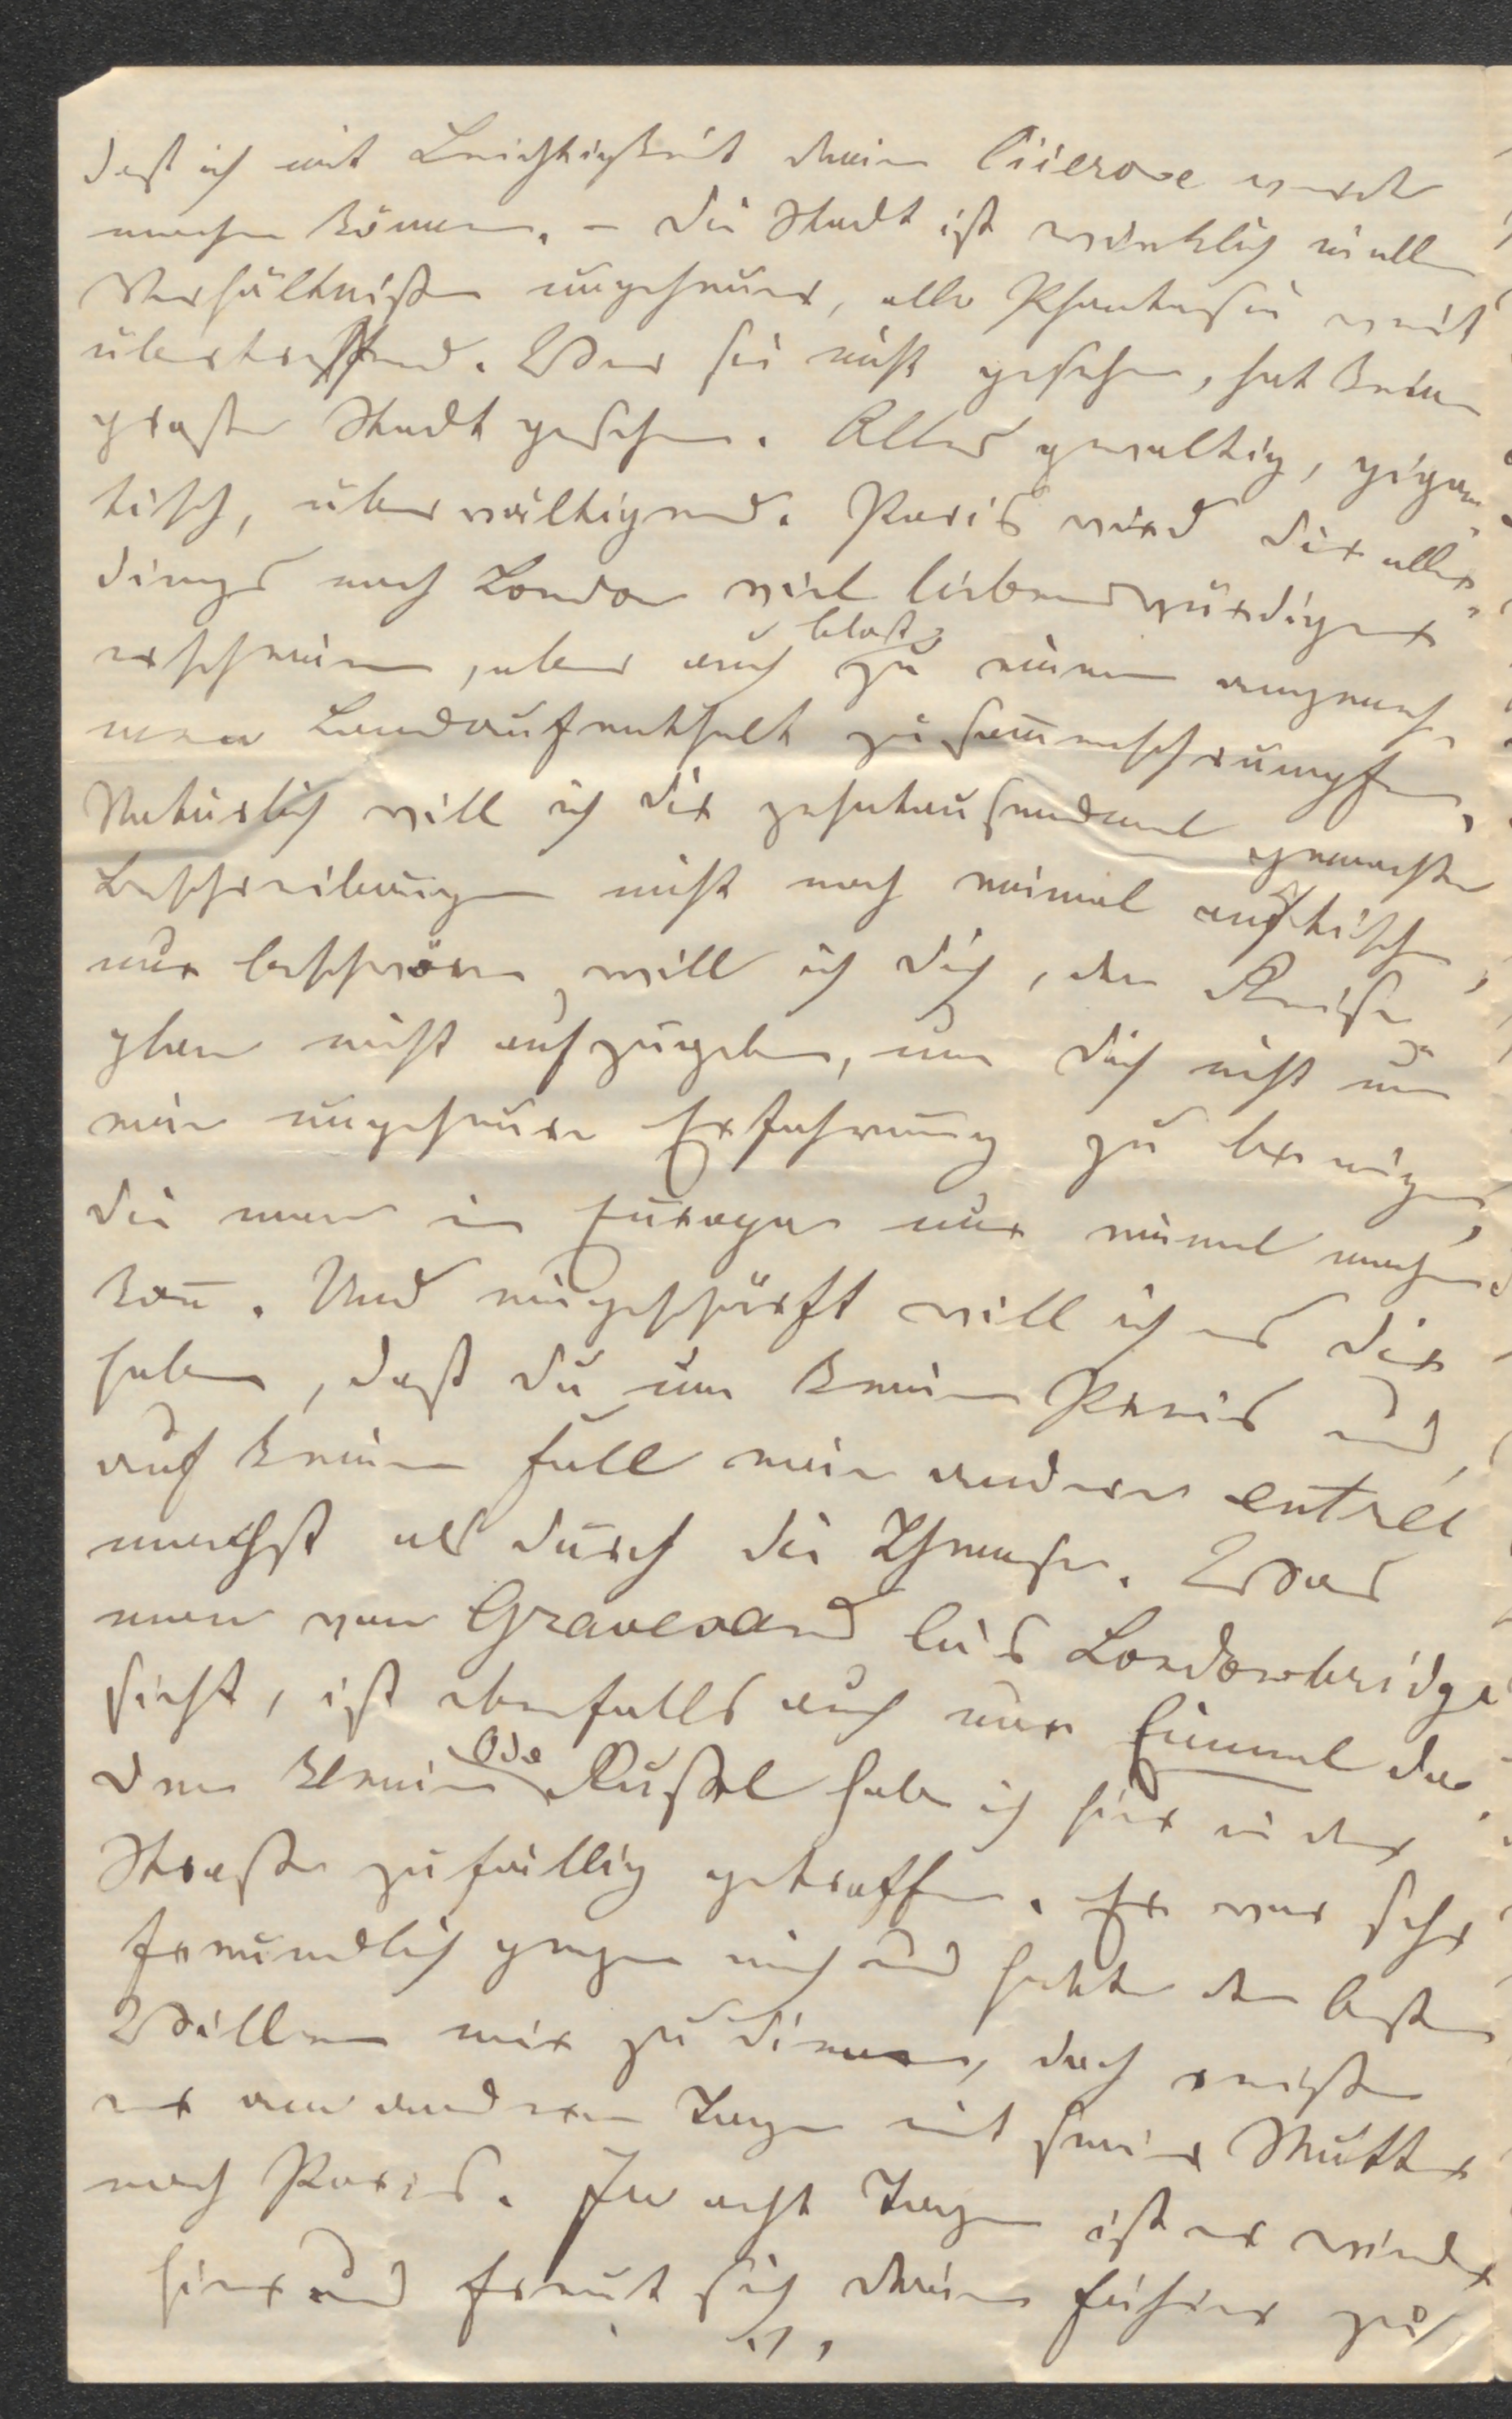 daß ich mit Leichtigkeit deinen Cicerone werde
machen können. – Die Stadt ist wirklich in allen
Verhältnißen ungeheuer, alle Phantasie weit
übertreffend. Wer sie nicht gesehen, hat keine
große Stadt gesehen. Alles gewaltig, gigan-
tisch, überwältigend. Paris wird dir aller-
dings nach London viel liebenswürdiger
erscheinen, aber auch bloß zu einem angeneh-
men Landaufenthalt zusam̅enschrumpfen,
Natürlich will ich dir zehntausendmal gemachte
Beschreibungen nicht noch einmal auftischen,
nur beschwören will ich dich, den Reise
plan nicht aufzugeben, um dich nicht um
eine ungeheure Erfahrung zu bringen,
die man in Europa nur einmal machen
kan̅. Und eingeschärft will ich es dir
haben, daß du um keinen Preis und
auf keinen Fall eine andere entrée
machst als durch die Themse. Was
man von Gravesand bis Londonbridge
sieht, ist ebenfalls auch nur Einmal da.
Den kleinen Odo Rußel habe ich hier in der
Straße zufällig getroffen. Er war sehr
freundlich gegen mich und hatte den besten
Willen mir zu dienen, doch reiste
er am anderen Tage mit seiner Mutter
nach Paris. In acht Tagen ist er wieder
hier und freut sich deinen Führer zu